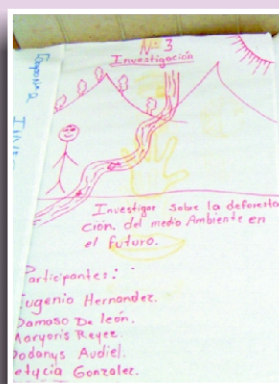 Nº 3
Investigación
Investigar sobre la deforesta
ción. del medio Ambiente en
el futuro.
Participantes:
Eugenio Hernandez.
Damaso De león.
Maryoris Reyez.
Audiel.
Letycia Gonzalez.